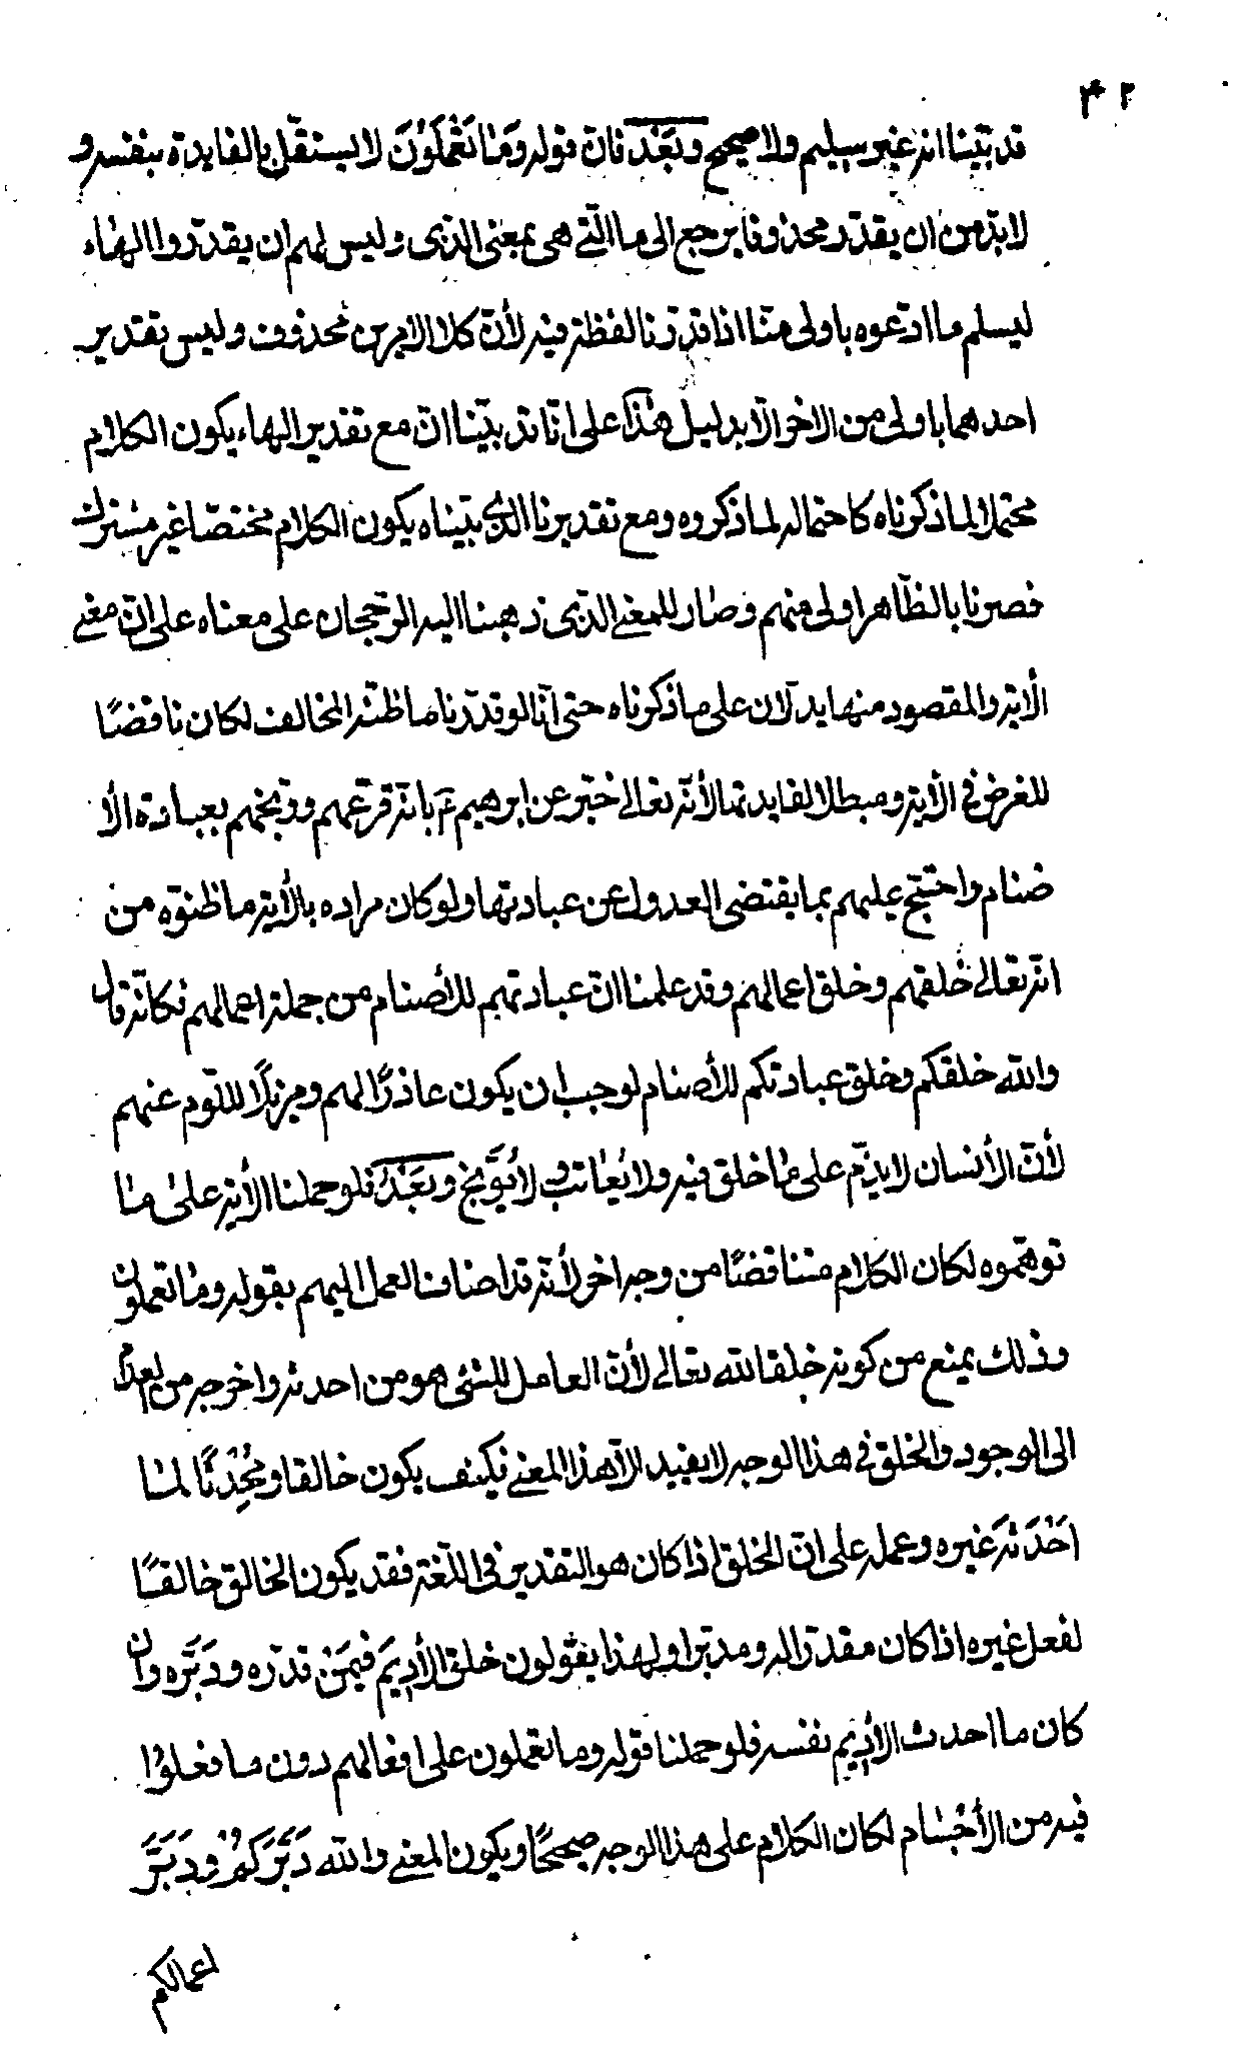 ۴۲
قد بيّنا انه غير سليم ولا صحيح وبَعْد فانّ قوله وَمٰا تَعْمَلُونَ لا يستقلّ بالفايدة بنفسه و
لا بدّ من ان يقدّر محذوفا يرجع الى ما الّتى هى بمعنى الذى وليس لهم ان يقدّروا الهٰاء
ليسلم ما ادّعوه باولى منّا اذا قدّرنا لفظة فيه لأنّ كلا الامرين محذوف وليس تقدير
احدهما باولى من الاخر الّا بدليل هٰذا على انّا قد بيّنا انّ مع تقدير الهاء يكون الكلام
محتملا لما ذكرناه كاحتماله لما ذكروه ومع تقديرنا الذى بيّناه يكون الكلام مختصّا غير مشترك
فصرنا بالظّاهر اولى منهم وصٰار للمعنى الذى ذهبنا اليه الرّجحان على معناه على انّ معنى
الأية والمقصود منها يدلّان على ما ذكرناه حتى انّا لو قدّرنا ما ظنّه المخالف لكان ناقضًا
للغرض فى الأية ومبطلا لفايدتها لأنّه تعالى خبّر عن ابرهيم ع بانّه قرّعهم ووبّخهم بعبادة الأ
صنام واحتجّ عليهم بما يقتضى العدول عن عبادتها ولو كان مراده بالأية ما ظنّوه من
انّه تعالى خلقهم وخلق اعمالهم وقد علمنا انّ عبادتهم للأصنام من جملة اعمالهم فكانّه قال
والله خلقكم وخلق عبادتكم للأصنام لوجب ان يكون عاذرًا لهم ومزيلًا للّوم عنهم
لأنّ الأنسان لا يذمّ على مٰا خلق فيه ولا يُعٰاتب ولا يُوبّخ وبَعْدُ فلو حملنا الأية علىٰ مٰا
توهّموه لكان الكلام متناقضًا من وجه اخر لأنّه قد اضاف العمل اليهم بقوله ومٰا تعملون
وذلك يمنع من كونه خلقا لله تعالى لأنّ العامل للشئ هو من احدثه واخرجه من العدم
الى الوجود والخلق فى هذا الوجه لا يفيد الّا هذا المعنى فكيف يكون خالقا ومُحْدِثًا لمٰا
اَحْدَثَه غيره وعمله على انّ الخلق اذا كان هو التقدير فى اللّغة فقد يكون الخالق خالقًا
لفعل غيره اذا كان مقدّرا له ومدبّرا ولهذا يقولون خلق الأديَم فيمَنْ قدّره ودَبَّره وان
كان ما احدث الأديم نفسه فلو حملنا قوله وما تعملون على افعالهم دون ما فعلوُا
فيه من الأجْسٰام لكان الكلام على هذا الوجه صحيحًا ويكون المعنى والله دَبَّرَكُمْ ودَبَّرَ
اعمالكم